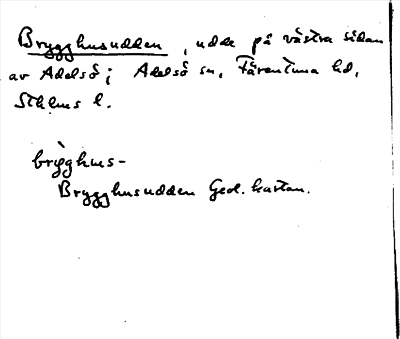 Brygghusudden, udde på västra sidan
av Adelsö; Adelsö sn, Färentuna hd,
Sthlms l.
brỳgghus-
Brygghusudden Geol. kartan.